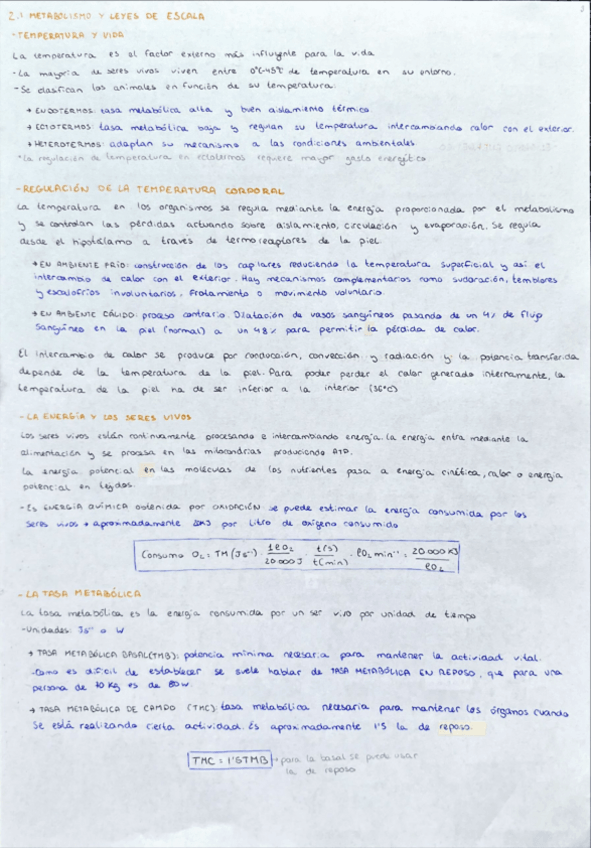 2.1 METABOLISMO Y LEYES DE ESCALA
-TEMPERATURA Y VIDA
La temperatura es el factor externo más influyente para la vida
-La mayoría de seres vivos viven entre 0°C-45°C de temperatura en su entorno.
-Se clasifican los animales en función de su temperatura:
→ ENDOTERMOS: tasa metabólica alta y buen aislamiento térmico.
→ ECTOTERMOS: tasa metabólica baja y regulan su temperatura intercambiando calor con el exterior.
→ HETEROTERMOS: adaptan su mecanismo a las condiciones ambientales.
*La regulación de temperatura en ectotermos requiere mayor gasto energético.
-REGULACIÓN DE LA TEMPERATURA CORPORAL
La temperatura en los organismos se regula mediante la energía proporcionada por el metabolismo
y se controlan las pérdidas actuando sobre aislamiento, circulación y evaporación. Se regula
desde el hipotálamo a traves de termoreaptores de la piel.
→ EN AMBIENTE FRÍO: construcción de los capilares reduciendo la temperatura superficial y así el
intercambio de calor con el exterior. Hay mecanismos complementarios como sudoración, temblores
y escalofríos involuntarios. Frotamiento o movimiento voluntario.
→ EN AMBIENTE CÁLIDO: proceso contrario. Dilatación de vasos sanguíneos pasando de un 4% de flujo
sanguíneo en la piel (normal) a un 48% para permitir la pérdida de calor.
El intercambio de calor se produce por conducción, convección y radiación y la potencia transferida
depende de la temperatura de la piel. Para poder perder el calor generado internamente, la
temperatura de la piel ha de ser inferior a la interior (36°C)
-LA ENERGÍA Y LOS SERES VIVOS
Los seres vivos están continuamente procesando e intercambiando energía. La energía entra mediante la
alimentación y se procesa en las mitocondrias produciendo ATP.
La energía potencial en las moléculas de los nutrientes pasa a energía cinética, calor o energía
potencial en tejidos.
-Es ENERGÍA QUÍMICA obtenida por OXIDACIÓN se puede estimar la energía consumida por los
seres vivos → aproximadamente 20KJ por litro de oxígeno consumido
Consumo O₂ = TM (Js⁻¹) · 1 l O₂ / 20.000 J · t(s) / t(min) · lO₂ min⁻¹ = 20 000 KJ / lO₂
-LA TASA METABÓLICA
La tasa metabólica es la energía consumida por un ser vivo por unidad de tiempo
-Unidades: Js⁻¹ o W
→ TASA METABÓLICA BASAL (TMB): potencia mínima necesaria para mantener la actividad vital.
-Como es difícil de establecer se suele hablar de TASA METABÓLICA EN REPOSO, que para una
persona de 70 kg es de 80w.
→ TASA METABÓLICA DE CAMPO (TMC): tasa metabólica necesaria para mantener los órganos cuando
se está realizando cierta actividad. Es aproximadamente 1'5 la de reposo.
TMC = 1'5TMB → para la basal se puede usar
la de reposo